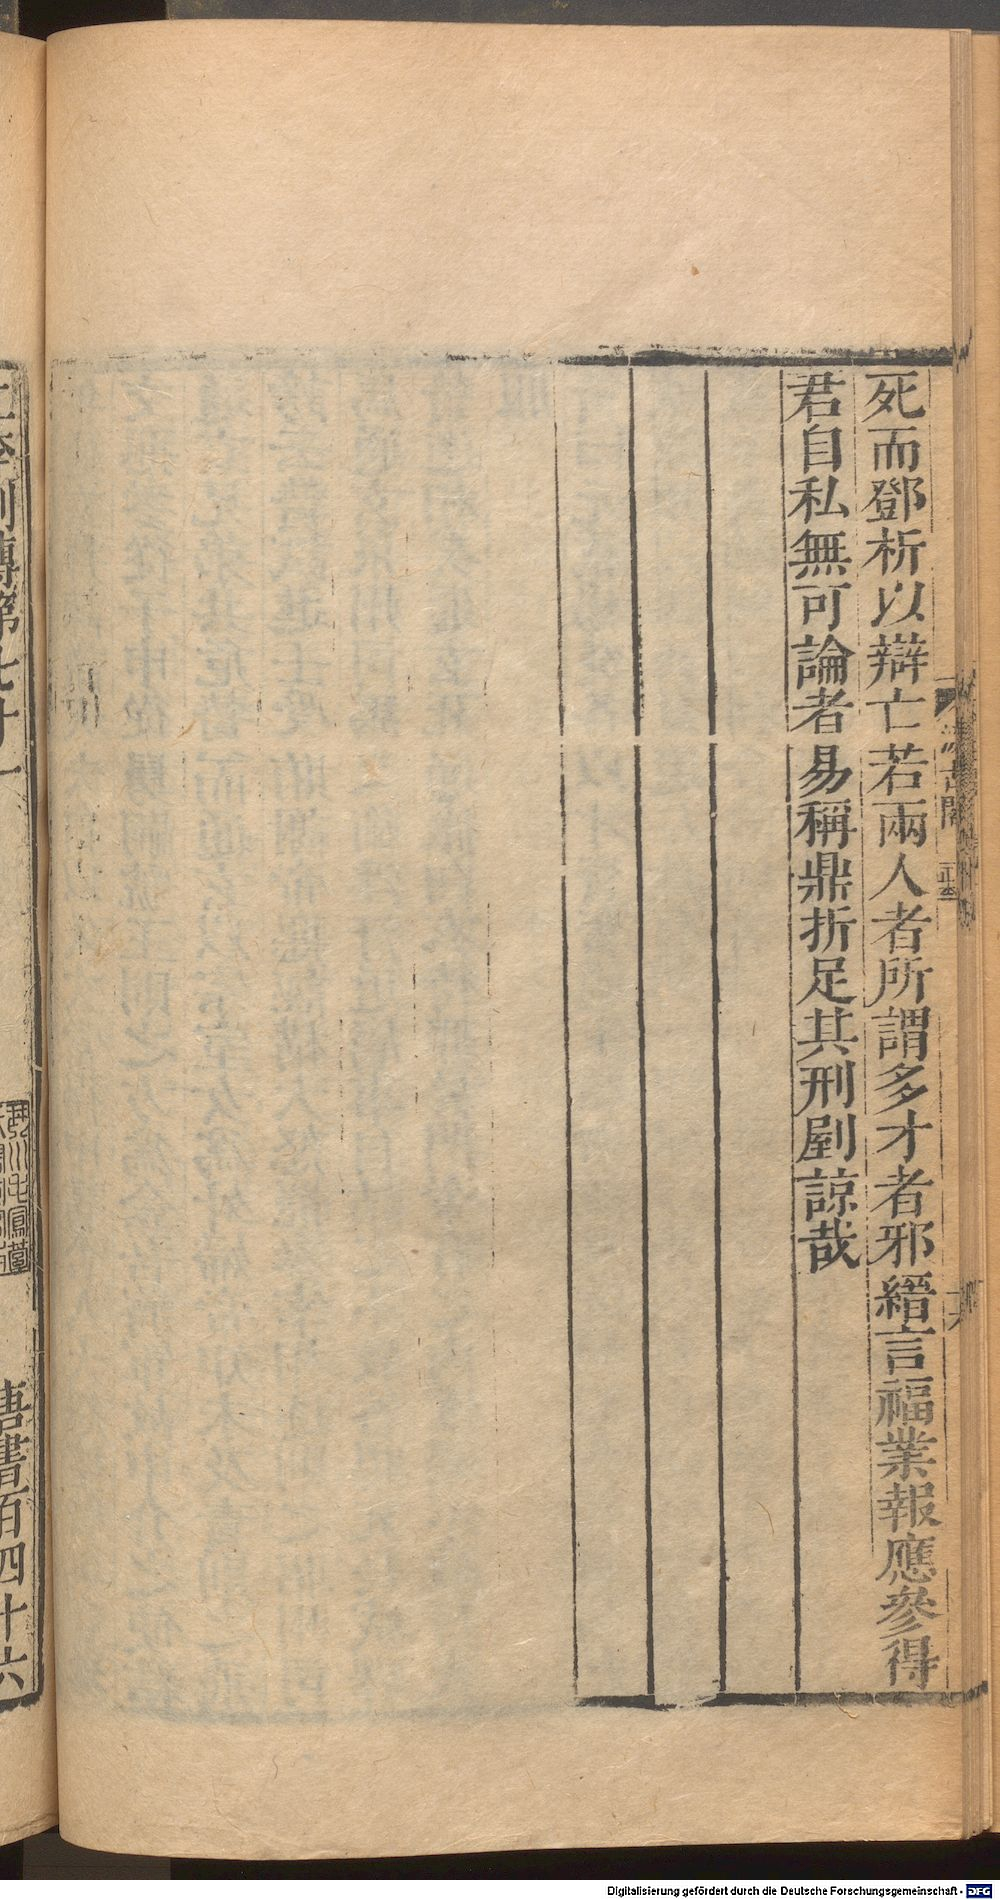 死而鄧析以辯亡若兩人者所謂多才者邪縉言福業報應參得
君自私無可論者易稱鼎折足其刑剭諒哉
列傳第七十一
唐書百四十六
Digitalisierung gefördert durch die Deutsche Forschungsgemeinschaft - DFG